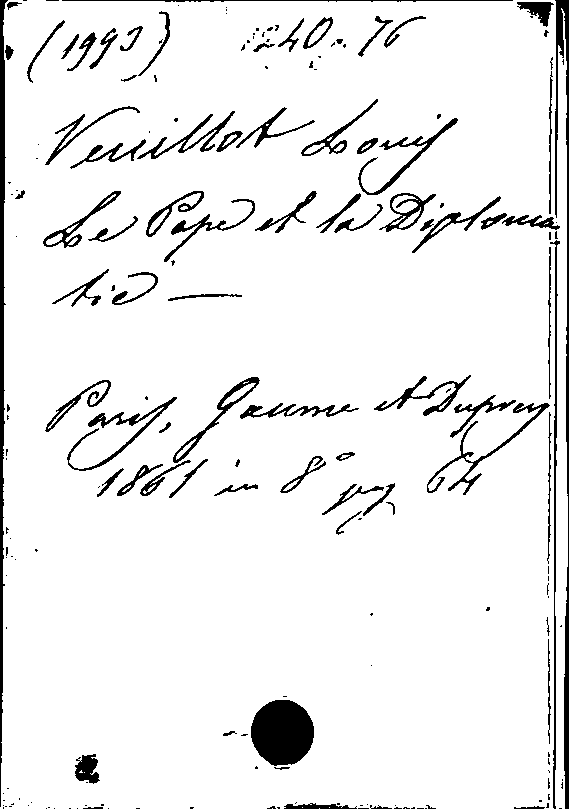 (1993) 1240 a 76
Veuillot Louis
Le Pape et la Diploma
tie —
Paris, Gaume et Duprey
1861 in 8° pag 64